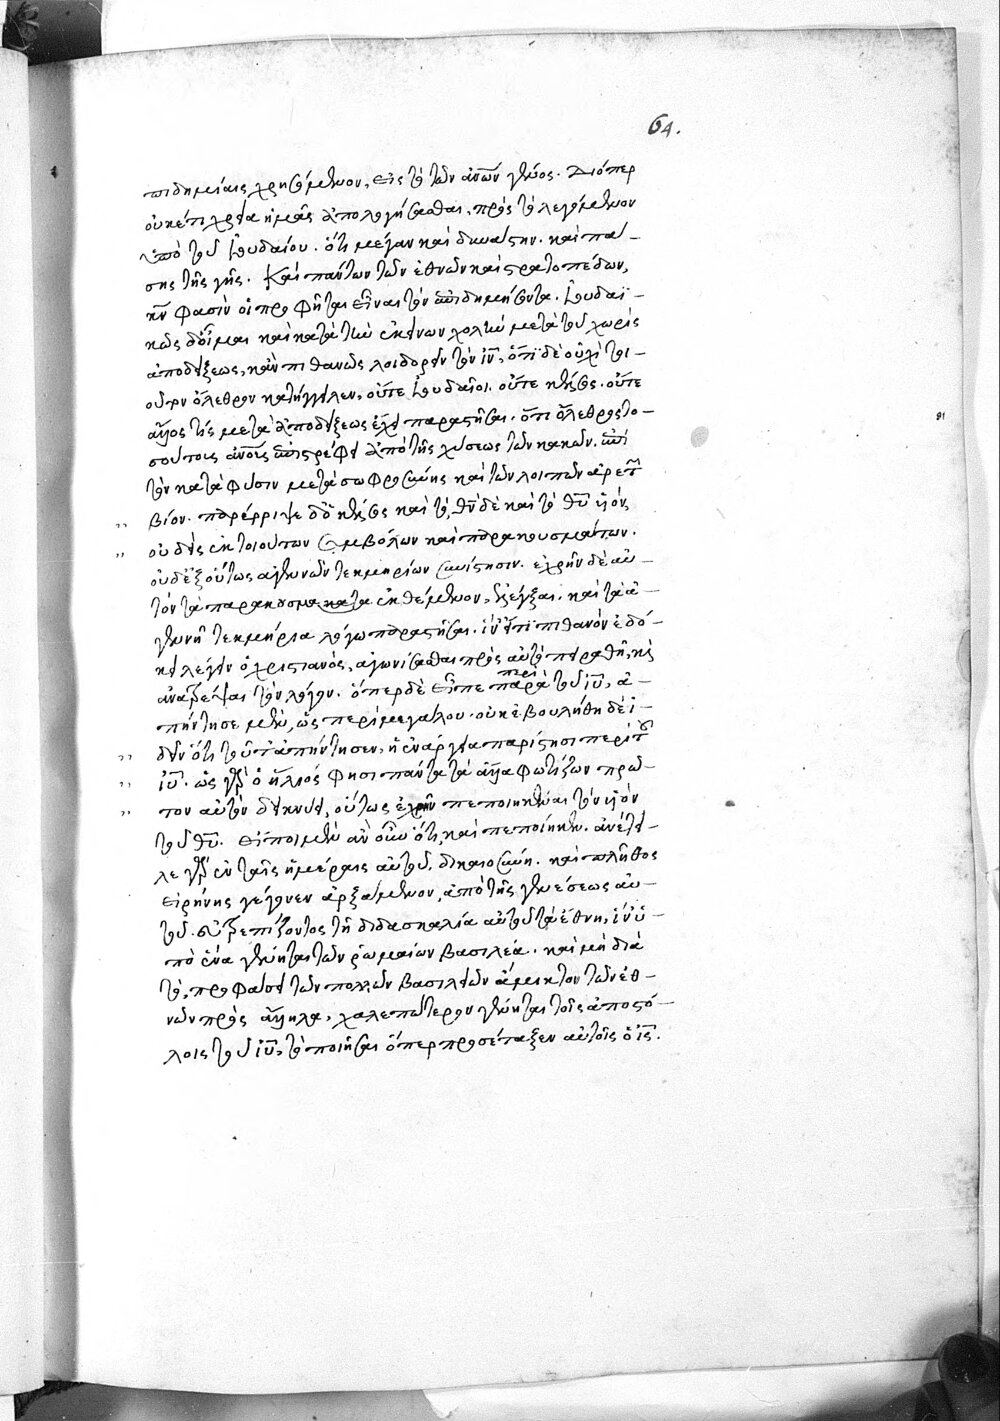 64.
πιδημίαις χρησόμενον, εἰς τὸ τῶν ἀνῶν γένος. Διόπερ
οὐκέτι χρεία ἡμᾶς ἀπολογήσασθαι, πρὸς τὸ λεγόμενον
ὑπὸ τοῦ Ἰουδαίου. ὅτι μέγαν καὶ δυνάστην. καὶ πά-
σης τῆς γῆς. Καὶ πάντων τῶν ἐθνῶν καὶ στρατοπέδων,
φασὶν οἱ προφῆται εἶναι τὸν ἐπιδημήσοντα. Ἰουδαϊ-
κῶς δ' οἶμαι καὶ κατὰ τὴν ἐκείνων χολὴν μετὰ τοῦ χωρὶς
ἀποδείξεως, κἂν πιθανῶς λοιδορεῖν τὸν ἰν, ὅτι δὲ οὐχὶ τοι-
οῦτον ὄλεθρον κατήγγελλεν, οὔτε Ἰουδαῖοι. οὔτε κέλσος. οὔτε
ἄλλος τίς μετὰ ἀποδείξεως ἔχει παραστῆσαι. ὅτι ὄλεθρος το-
σούτους ἀνους ἐπιστρέφει ἀπὸ τῆς χύσεως τῶν κακῶν. ἐπὶ
τὸν κατὰ φύσιν μετὰ σωφροσύνης καὶ τῶν λοιπῶν ἀρετῶν
,, βίον. παρέρριψε δ' ὁ κέλσος καὶ τὸ, θν δὲ καὶ τὸ θῦ υἱὸν
,, οὐδεὶς ἐκ τοιούτων συμβόλων καὶ παρακουσμάτων.
οὐδ' ἐξ οὕτως ἀγεννῶν τεκμηρίων συνίστησιν. ἐχρῆν δὲ αὐ-
τὸν τὰ παρακούσματα ἐκθέμενον, ἐλέγξαι. καὶ τὰ ἀ-
γεννῆ τεκμήρια λόγω παραστῆσαι. ἵν' εἴτι πιθανὸν ἐδό-
κει λέγειν ὁ χριστιανὸς, ἀγωνίσασθαι πρὸς αὐτὸ πειραθῆ, κὶ
ἀνατρέψαι τὸν λόγον. ὅπερ δὲ εἶπε περὶ παρὰ τοῦ ἰῦ, ἀ-
πήντησε μὲν, ὡς περὶ μεγάλου. οὐκ ἐβουλήθη δὲ ἰ-
,, δεῖν ὅτι τοῦτ' ἀπήντησεν, ἡ ἐνάργεια παρίστησι περὶ τοῦ
,, ἰῦ. ὡς γὰρ ὁ ἥλιός φησι πάντα τὰ ἄλλα φωτίζων πρῶ-
,, τον αὐτὸν δεικνύει, οὕτως ἐχρῆν πεποιηκέναι τὸν υἱὸν
τοῦ θῦ. εἴποιμεν ἂν οὖν ὅτι, καὶ πεποίηκεν. ἀνέτει-
λε γὰρ ἐν ταῖς ἡμέραις αὐτοῦ, δικαιοσύνη. καὶ πλῆθος
εἰρήνης γέγονεν ἀρξάμενον, ἀπὸ τῆς γενέσεως αὐ-
τοῦ. εὐτρεπίζοντος τῆ διδασκαλία αὐτοῦ τὰ ἔθνη, ἵν' ὑ-
πὸ ἕνα γένηται τῶν ῥωμαίων βασιλέα. καὶ μὴ διὰ
τὸ, προφάσει τῶν πολλῶν βασιλειῶν ἄμικτον τῶν ἐθ-
νῶν πρὸς ἄλληλα, χαλεπώτερον γένηται τοῖς ἀποστό-
λοις τοῦ ἰῦ, τὸ ποιῆσαι ὅπερ προσέταξεν αὐτοῖς ὁ ἰς.